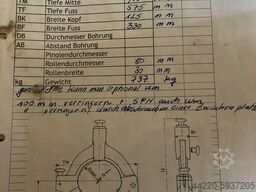 TM Tiefe Mitte mm
TF Tiefe Fuss 575 mm
BK Breite Kopf 145 mm
BF Breite Fuss 330 mm
DB Durchmesser Bohrung mm
AB Abstand Bohrung mm
Pinolendurchmesser mm
Rollendurchmesser 80 mm
Rollenbreite 30 mm
kg Gewicht 737 kg
Kann man optional um
100 mm verringern + SPH auch um
verringern durch abschrauben einer Zwischenplatte
TM
44220-5937205